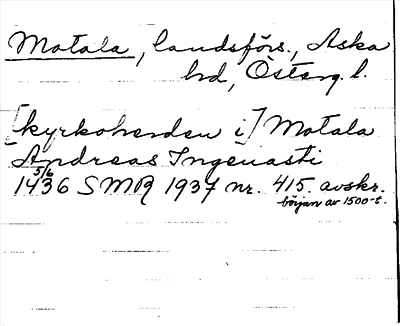 Motala, landsförs., Aska
hd, Österg. l.
[kyrkoherden i] Motala
Andreas Ingeuasti
5/6
1436 SMR 1937 nr. 415. avskr.
början av 1500-t.